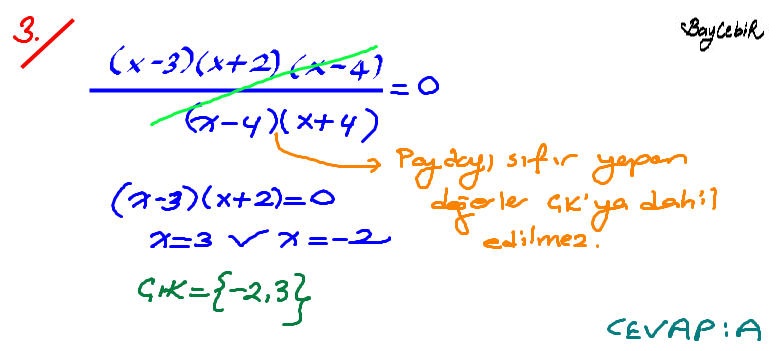 3.
BayCebiR
(x-3)(x+2)(x-4)
(x-4)(x+4)
=0
Paydayı sıfır yapan
değerler ÇK'ya dahil
edilmez.
(x-3)(x+2)=0
x=3 ∨ x=-2
Ç.K={-2,3}
CEVAP:A